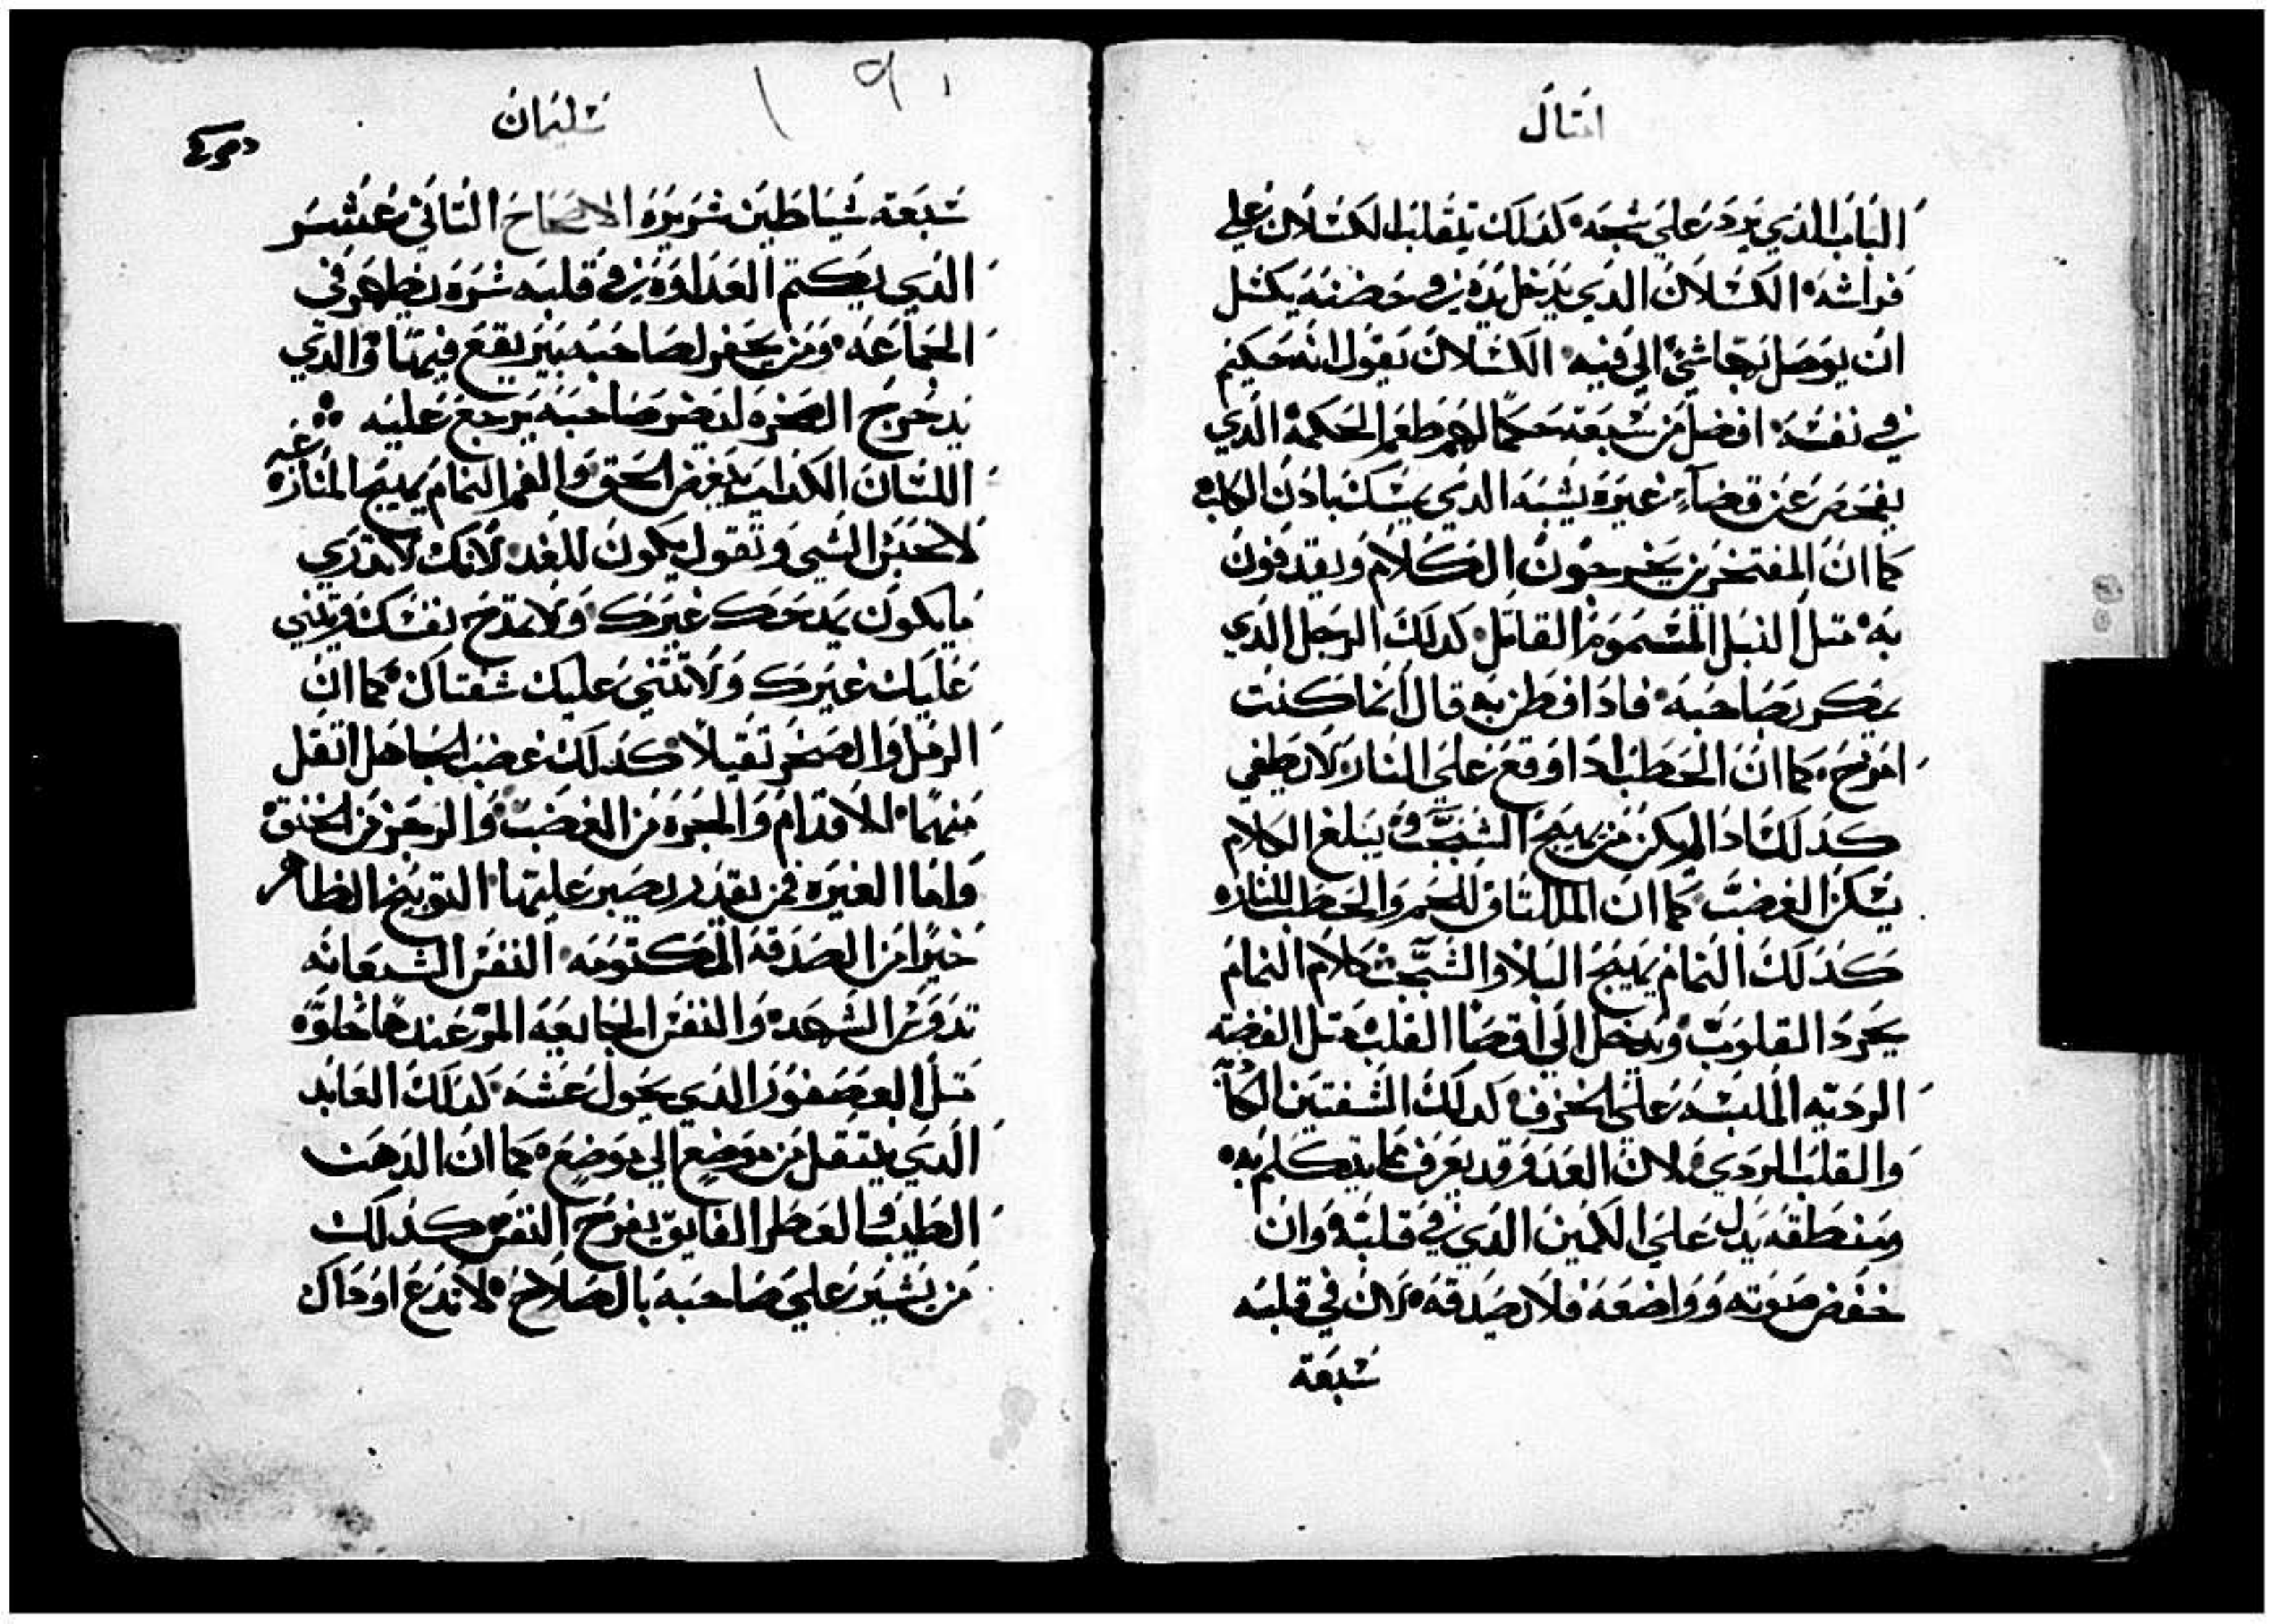 امثال
الباب الذي يرد علي شجه كذلك يتقلب الكسلان علي
فراشه الكسلان الدي يدخل يده في حضنه يكسل
ان يوصل بها شي الي فيه الكسلان يقول انه حكيم
في نفسه افضل من سبعه حكما لهم طعم الحكمة الدي
يفحص عن قضآء غيره يشبه الدي يمسك بادن الكلب
كما ان المفتخرين يخرجون الكلام ويقدفون
به متل النبل المسموم القاتل كدلك الرجل الدي
يمكر بصاحبه فادا فطن به قال انما كنت
امزح كما ان الحطب ادا وقع علي النار لا يطفي
كدلك ادا لم يكن من يهيج الشجب وببلغ الكلام
يسكن الغضب كما ان للجمر والحطب للنار
كدلك النمام يهيج البلا والشجب كلام النمام
يجرد القلوب ويدخل الي اقصا القلب متل الفضه
الرديه الملبسه علي الخزف كدلك الشفتين
والقلب الردي لان العدو قد يعرف مما يتكلم به
ومنطقه يدل علي الكمين الدي في قلبه وان
خفض صوته وواضعه فلا يصدقه لان في قلبه
سبعة
سليمان
سبعة شياطين شريره الاصحاح التاني عشر
الدي يكتم العداوه في قلبه شره يظهر في
الجماعه ومن يحفر لصاحبه بير يقع فيها والدي
يدحرج الصخره ليضر صاحبه يرجع عليه
اللسان الكداب يبغض الحق والفم النمام يهيج المنازعه
لا تحبس الشي وتقول يكون للغد لانك لا تدري
ما يكون يمدحك غيرك ولا تمدح نفسك ويثني
عليك غيرك ولا تثني عليك شفتاك كما ان
الرمل والصخر تقيلا كدلك غضب الجاهل اتقل
منهما الاقدام والجره من الغضب والرجز من الحنق
واما الغيره فمن يقدر يصبر عليها التوبيخ الظاهر
خيرا من الصدقه المكتومه النفس الشبعانه
تدوس الشهد والنفس الجايعه المر عندها حلوه
متل العصفور الدي يحول عشه كدلك العابد
الدي ينتقل من موضع الي موضع كما ان الدهن
الطيب والعطر الفايق يفرح النفس كدلك
من يشير علي صاحبه بالصلاح لا تدع اوداك